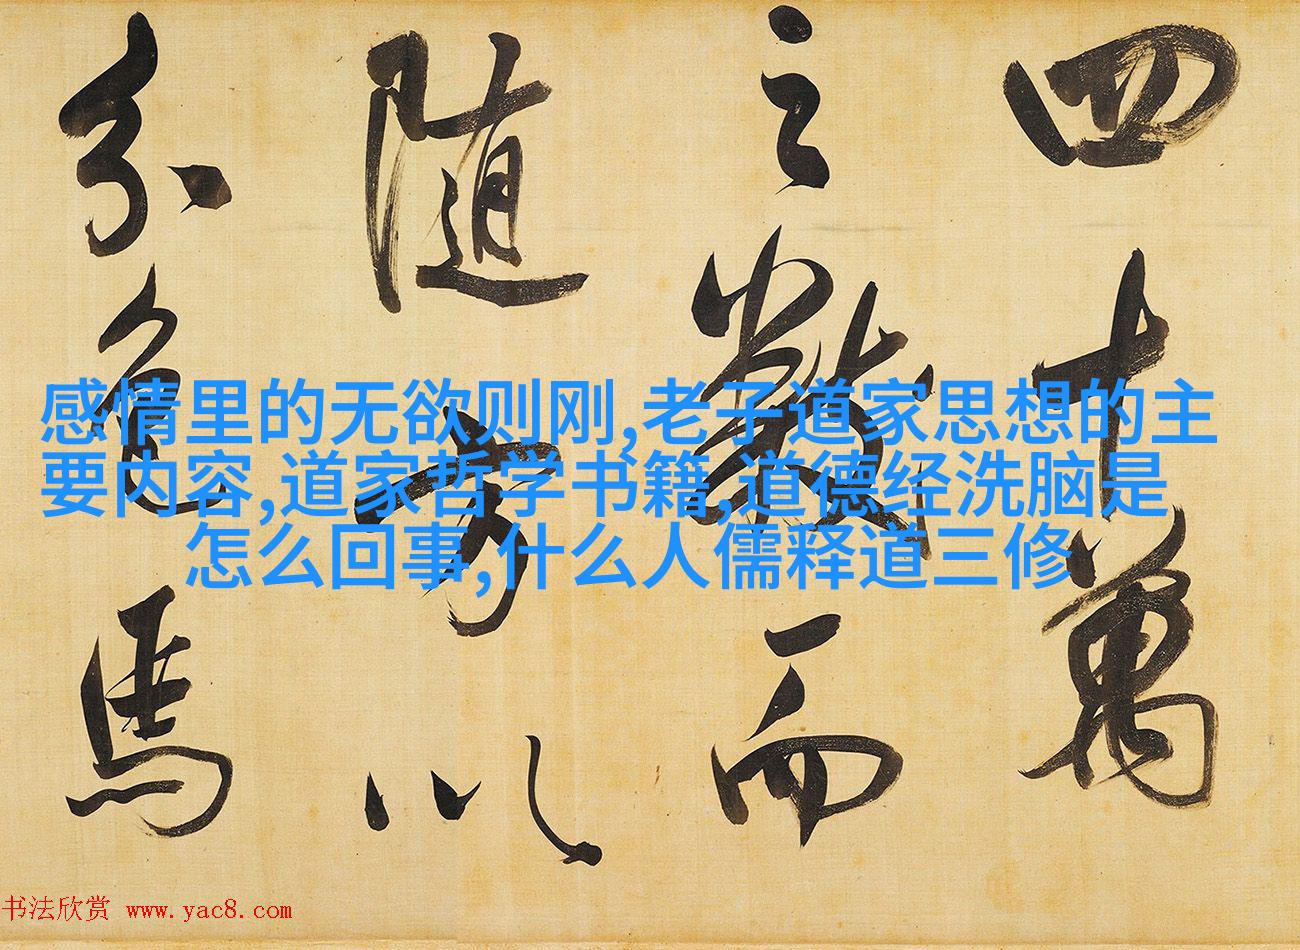 四十萬
之數而
隨方以
分色馬
感情里的无欲则刚,老子道家思想的主
要内容,道家哲学书籍,道德经洗脑是
怎么回事,什么人儒释道三修
书法欣赏 www.yac8.com